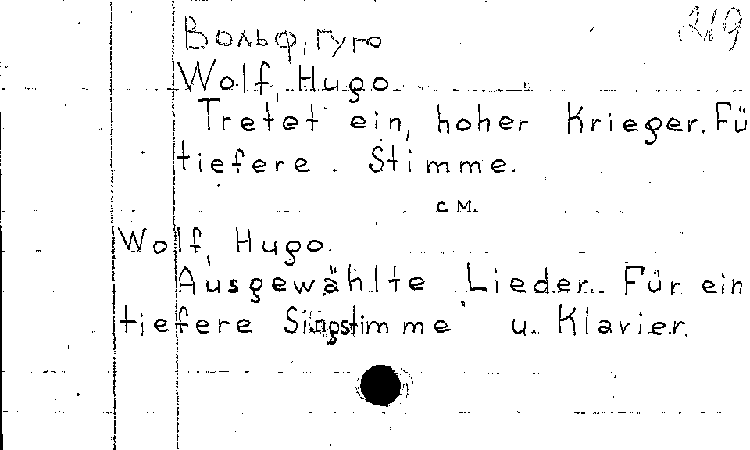 219
Вольф, Гуго
Wolf, Hugo.
Tretet ein, hoher Krieger. Fü
tiefere Stimme.
см.
Wolf, Hugo.
Ausgewählte Lieder. Für ein
tiefere Singstimme u. Klavier.